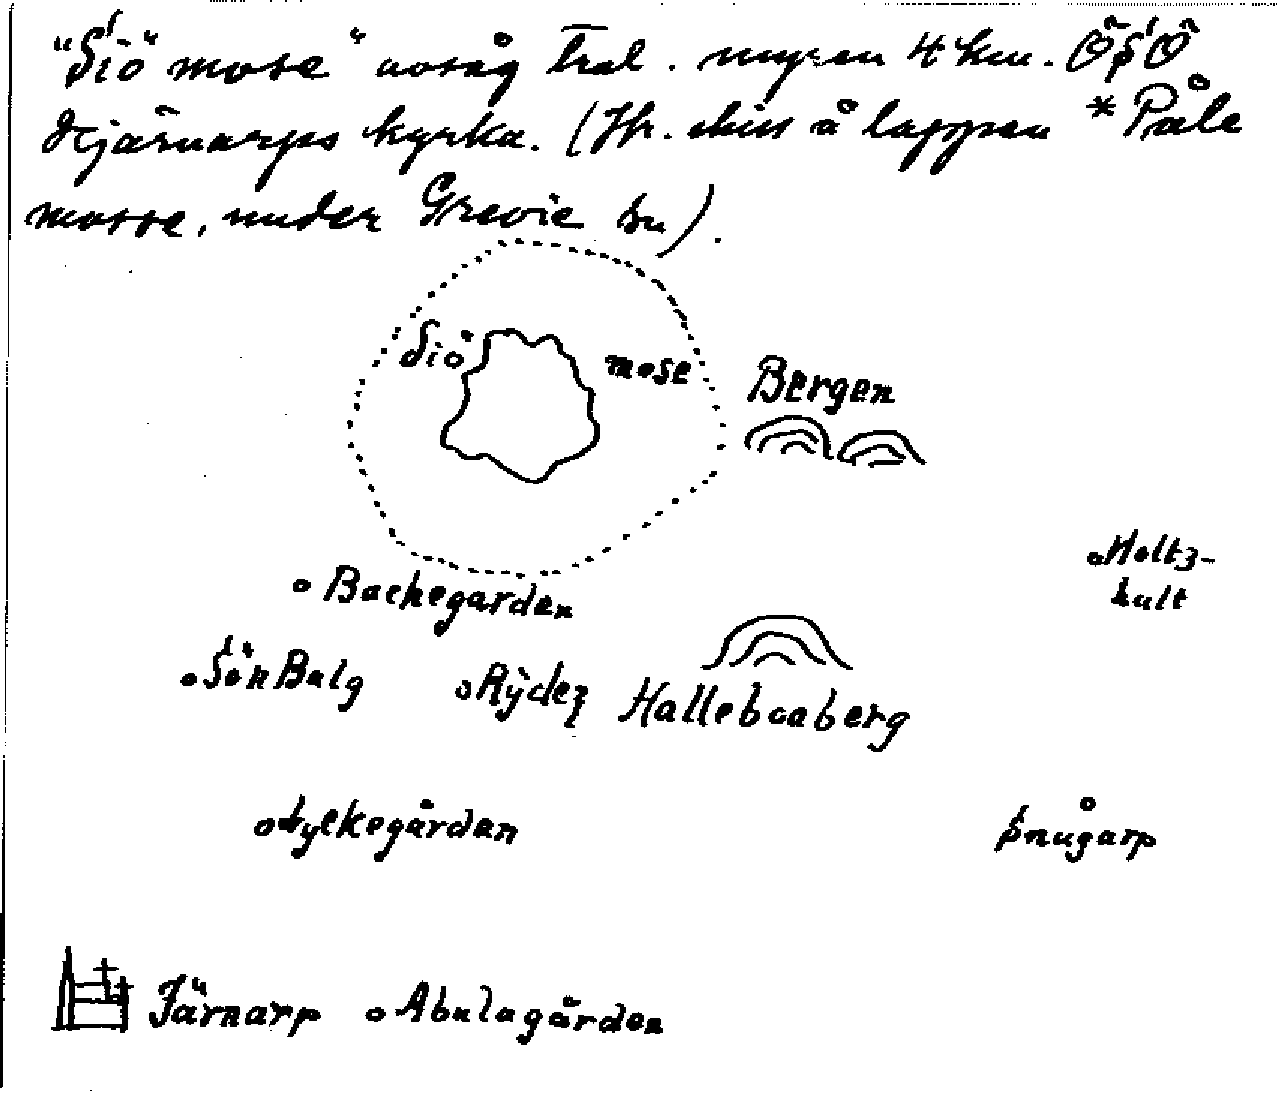 "Siö mosse" avsåg Tral. myren 4 km. ÖSÖ
Hjärnarps kyrka. (Jfr. skiss å lappen * Påle
mosse, under Grevie sn).
Siö mose
Bergen
Holtz-
hult
Backegarden
Sön Balg
Rÿdez
Halleboaberg
Lyckegården
Snugarp
Järnarp
Abulagården